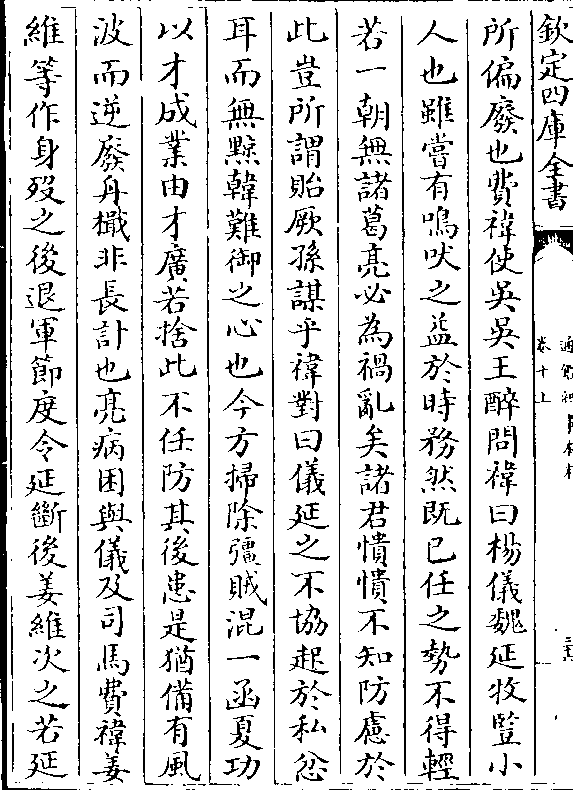 欽定四庫全書
卷十上
所偏廢也費禕使吳吳王醉問禕曰楊儀魏延牧豎小
人也雖嘗有鳴吠之益於時務然既已任之勢不得輕
若一朝無諸葛亮必為禍亂矣諸君憒憒不知防慮於
此豈所謂貽厥孫謀乎禕對曰儀延之不協起於私忿
耳而無黥韓難御之心也今方掃除彊賊混一函夏功
以才成業由才廣若捨此不任防其後患是猶備有風
波而逆廢舟檝非長計也亮病困與儀及司馬費禕姜
維等作身歿之後退軍節度令延斷後姜維次之若延